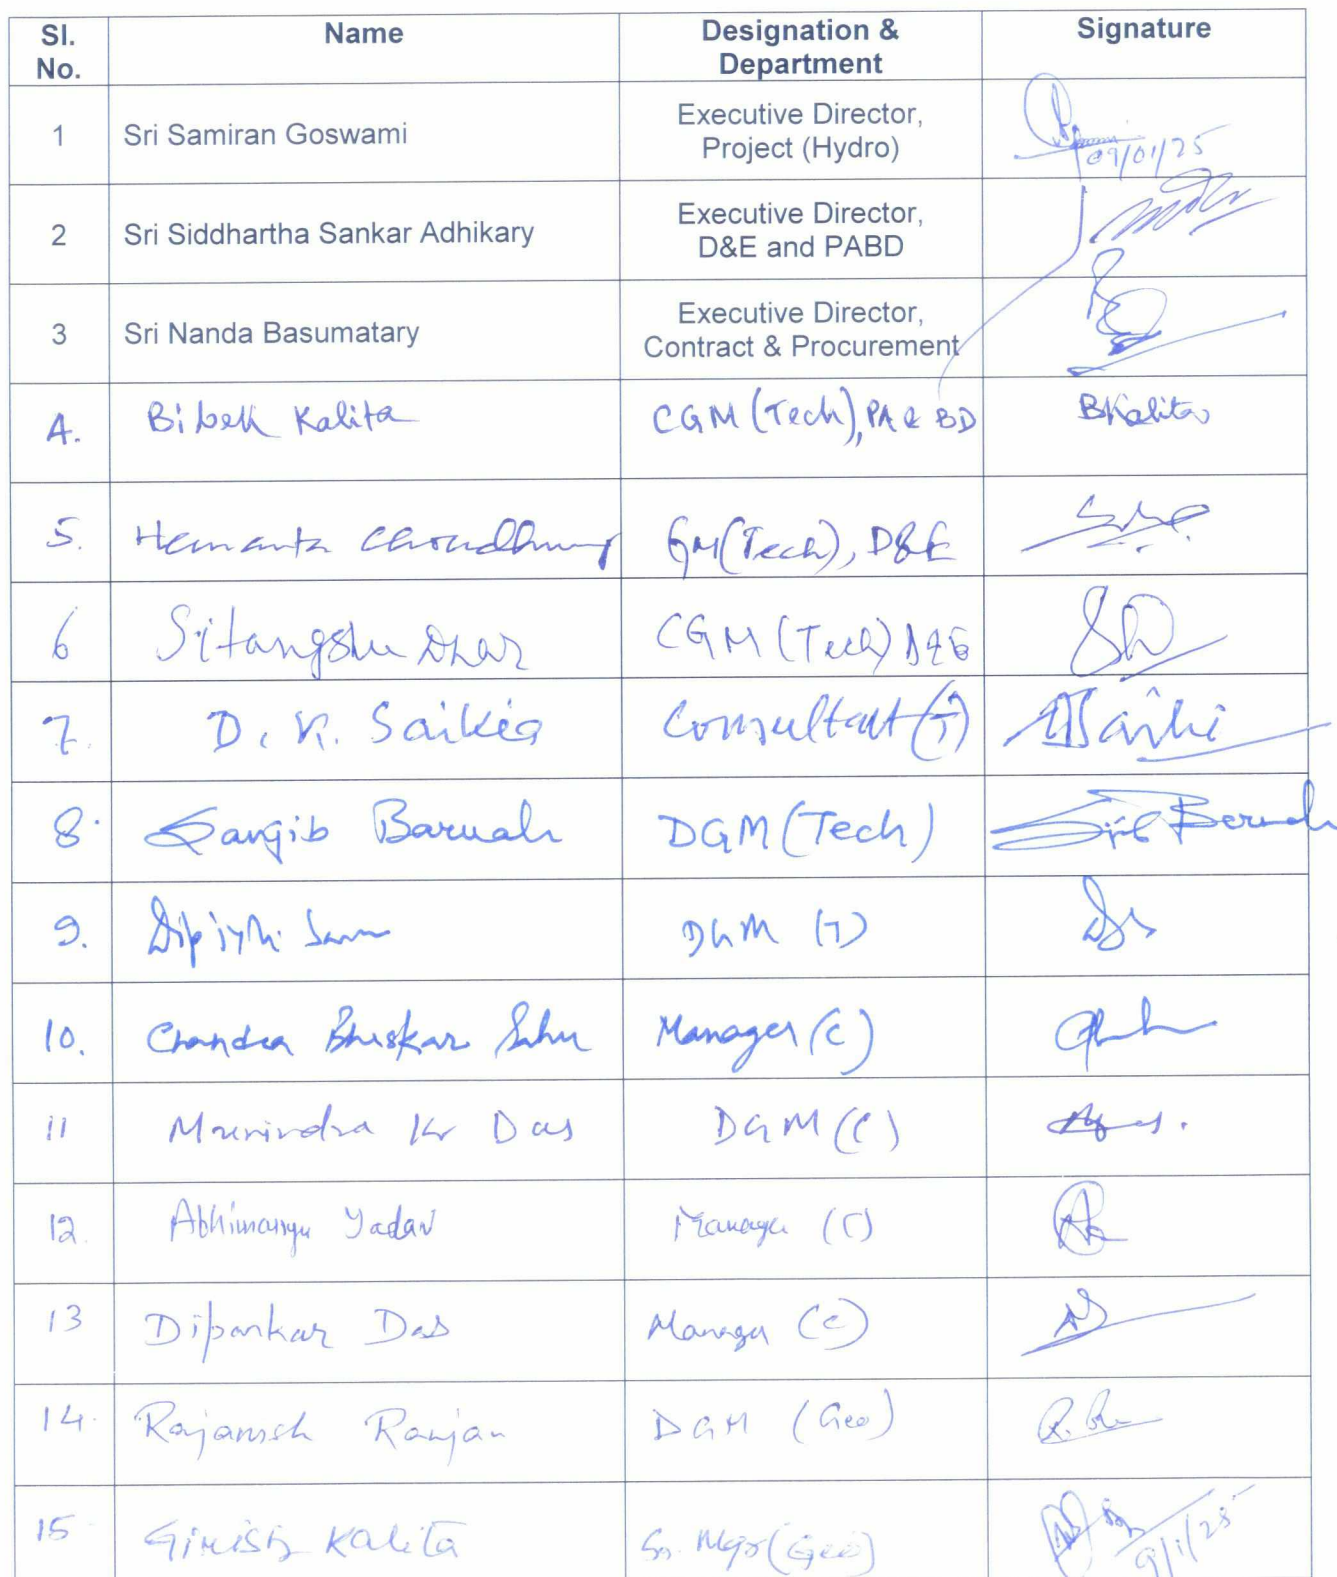 Sl. No. Name Designation & Department Signature
1 Sri Samiran Goswami Executive Director, Project (Hydro) 09/01/25
2 Sri Siddhartha Sankar Adhikary Executive Director, D&E and PABD
3 Sri Nanda Basumatary Executive Director, Contract & Procurement
4. Bibek Kalita CGM (Tech), PA & BD BKalita
5. Hemanta Choudhury GM (Tech), D&E
6 Sitangshu Dhar CGM (Tech) D&E
7. D. K. Saikia Consultant (T) Saikia
8. Sanjib Baruah DGM (Tech) Baruah
9. DGM (T)
10. Chandra Bhaskar Sahu Manager (C)
11 Munindra Kr Das DGM (C)
12. Abhimanyu Yadav Manager (T)
13 Dipankar Das Manager (C)
14. Rajanish Ranjan DGM (Geo)
15 Girish Kalita Sr. Mgr (Geo) 9/1/25